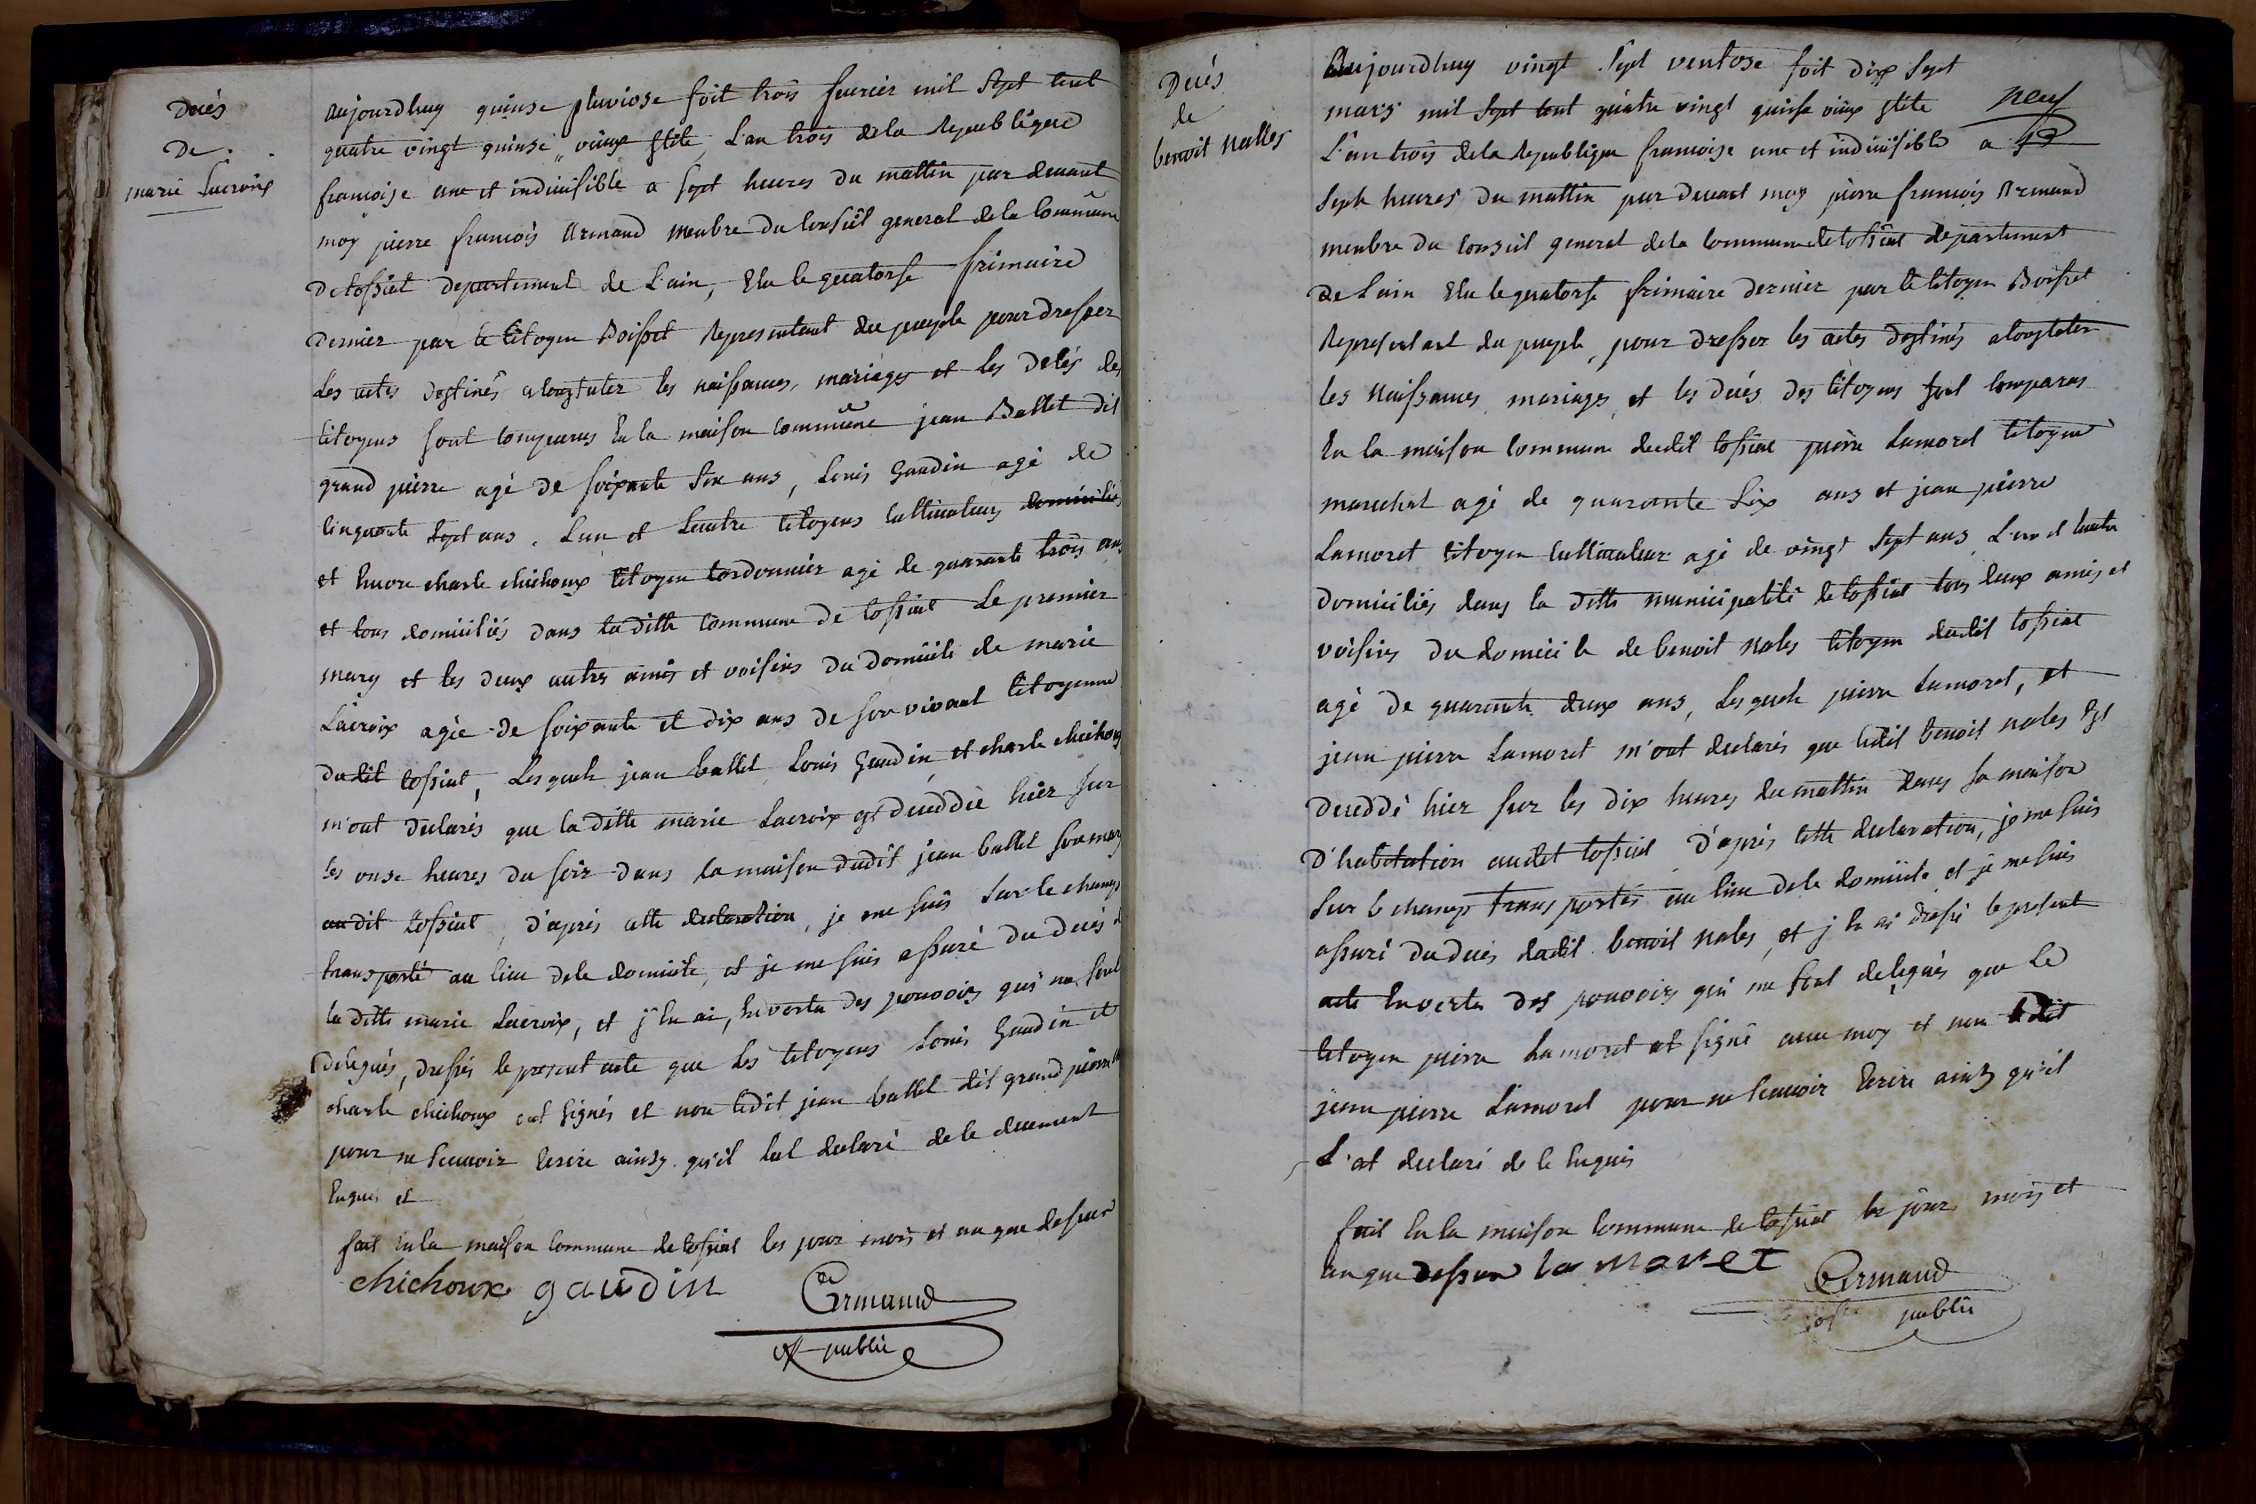 Decés
De
marie Lacroix
aujourdhuy quinse pluviose soit trois feurier mil sept cent
quatre vingt quinse vieux stile L'an trois de la Republique
francoise une et indiuisible a sept heures du mattin par deuant
moy pierre francois Armand membre du Conseil general de la Commune
de tossiat departement de L'ain, Elu le quatorse frimaire
dernier par le Citoyen Boisset Representant du peuple pour dresser
Les actes destinés a Constater les naissances, mariages et les décés des
Citoyens sont comparus En la maison Commune jean Ballet dit
grand pierre agé de soixante six ans, Louis Gaudin agé de
Cinquante sept ans. L'un et Lautre Citoyens Cultiuateurs domiciliés
et Encore charle chichoux Citoyen Cordonnier agé de quarante trois ans
et tous domiciliés dans la ditte Commune de tossiat Le premier
mary et les deux autres amis et voisins du domicile de marie
Lacroix agée de soixante et dix ans de son vivant Citoyenne
dudit tossiat, Lesquels jean ballet Louis Gaudin, et charle chichoux
m'ont déclarés que la ditte marie Lacroix est deceddée hier sur
les onse heures du soir dans la maison dudit jean ballet son mary
audit tossiat, d'aprés cette declaration, je me suis sur le champ
transporté au lieu de le domicile, et je me suis assuré du décés de
la ditte marie Lacroix, et j'En ai, En vertu des pouvoirs qui me sont
delegués, dressés le present acte que les Citoyens Louis Gaudin et
charle chichoux ont signés et non Ledit jean ballet dit grand pierre
pour ne sçauoir Ecrire ainsy qu'il lat declaré de le duement
Enquis et
fait En la maison Commune de tossiat les jour mois et an que dessus
chichoux gaudin Armand
off public
Decés
de
benoit Nalles
Aujourdhuy vingt sept ventose soit dix sept
mars mil sept cent quatre vingt quinse vieux stile neuf
L'an trois de la Republique francoise une et indiuisible a
sept heures du mattin par deuant moy pierre francois Armand
membre du Conseil general de la Commune de tossiat departement
de L'ain Elu le quatorse frimaire dernier par le Citoyen Boisset
Representant du peuple, pour dresser les actes destinés a Constater
les naissances mariages et les décés des Citoyens sont Comparus
En la maison Commune dudit tossiat pierre Lamoret Citoyen
marechal agé de quarante six ans et jean pierre
Lamoret Citoyen Cultiuateur agé de vingt sept ans L'un et Lautre
domiciliés dans la ditte municipalité de tossiat tous deux amis et
voisins du domicile de benoit Nales Citoyen dudit tossiat
agé de quarante deux ans, Lesquels pierre Lamoret, et
jean pierre Lamoret m'ont declarés que Ledit benoit nales Est
deceddé hier sur les dix heures du mattin dans sa maison
d'habitation audit tossiat d'aprés cette declaration, je me suis
sur le champ transportés au lieu de le domicile et je me suis
assuré du décés dudit benoit Nales, et j'En ai dressé le present
acte En vertu des pouvoirs qui me sont delegués que Le
Citoyen pierre Lamoret at signé auec moy et non Ledit
jean pierre Lamoret pour ne sçauoir Ecrire ainsy qu'il
L'at declaré de le Enquis
fait En la maison Commune de tossiat les jour mois et
an que dessus la Moret Armand
off public